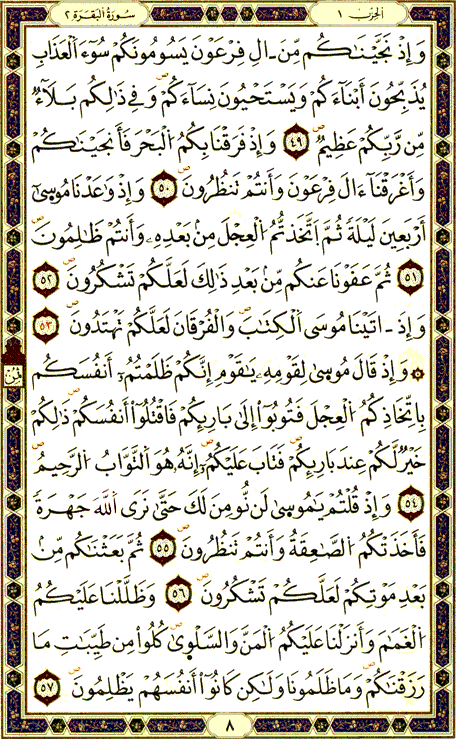 سُورَةُ الْبَقَرَةِ ٢ الحِزْبُ ١
وَإِذْ نَجَّيْنَـٰكُم مِّنَ ـ الِ فِرْعَوْنَ يَسُومُونَكُمْ سُوٓءَ اَ۬لْعَذَابِ
يُذَبِّحُونَ أَبْنَآءَكُمْ وَيَسْتَحْيُونَ نِسَآءَكُمْ وَفِے ذَٰلِكُم بَلَآءٌ
مِّن رَّبِّكُمْ عَظِيمٌ ٤٩ وَإِذْ فَرَقْنَا بِكُمُ اُ۬لْبَحْرَ فَأَنجَيْنَـٰكُمْ
وَأَغْرَقْنَآ ءَالَ فِرْعَوْنَ وَأَنتُمْ تَنظُرُونَ ٥٠ وَإِذْ وَٰعَدْنَا مُوسَىٰٓ
أَرْبَعِينَ لَيْلَةً ثُمَّ اَ۪تَّخَذتُّمُ اُ۬لْعِجْلَ مِنۢ بَعْدِهِۦ وَأَنتُمْ ظَـٰلِمُونَ
٥١ ثُمَّ عَفَوْنَا عَنكُم مِّنۢ بَعْدِ ذَٰلِكَ لَعَلَّكُمْ تَشْكُرُونَ ٥٢
وَإِذَ ـ اتَيْنَا مُوسَى اَ۬لْكِتَـٰبَ وَالْفُرْقَانَ لَعَلَّكُمْ تَهْتَدُونَ ٥٣
۞ وَإِذْ قَالَ مُوسَىٰ لِقَوْمِهِۦ يَـٰقَوْمِ إِنَّكُمْ ظَلَمْتُمُۥٓ أَنفُسَكُم
بِاتِّخَاذِكُمُ اُ۬لْعِجْلَ فَتُوبُوٓا۟ إِلَىٰ بَارِئِكُمْ فَاقْتُلُوٓا۟ أَنفُسَكُمْ ذَٰلِكُمْ
خَيْرٌ لَّكُمْ عِندَ بَارِئِكُمْ فَتَابَ عَلَيْكُمُۥٓ إِنَّهُۥ هُوَ اَ۬لتَّوَّابُ اُ۬لرَّحِيمُ
٥٤ وَإِذْ قُلْتُمْ يَـٰمُوسَىٰ لَن نُّومِنَ لَكَ حَتَّىٰ نَرَى اَ۬للَّهَ جَهْرَةً
فَأَخَذَتْكُمُ اُ۬لصَّـٰعِقَةُ وَأَنتُمْ تَنظُرُونَ ٥٥ ثُمَّ بَعَثْنَـٰكُم مِّنۢ
بَعْدِ مَوْتِكُمْ لَعَلَّكُمْ تَشْكُرُونَ ٥٦ وَظَلَّلْنَا عَلَيْكُمُ
اُ۬لْغَمَـٰمَ وَأَنزَلْنَا عَلَيْكُمُ اُ۬لْمَنَّ وَالسَّلْوَىٰ كُلُوا۟ مِن طَيِّبَـٰتِ مَا
رَزَقْنَـٰكُمْ وَمَا ظَلَمُونَا وَلَـٰكِن كَانُوٓا۟ أَنفُسَهُمْ يَظْلِمُونَ ٥٧
٨